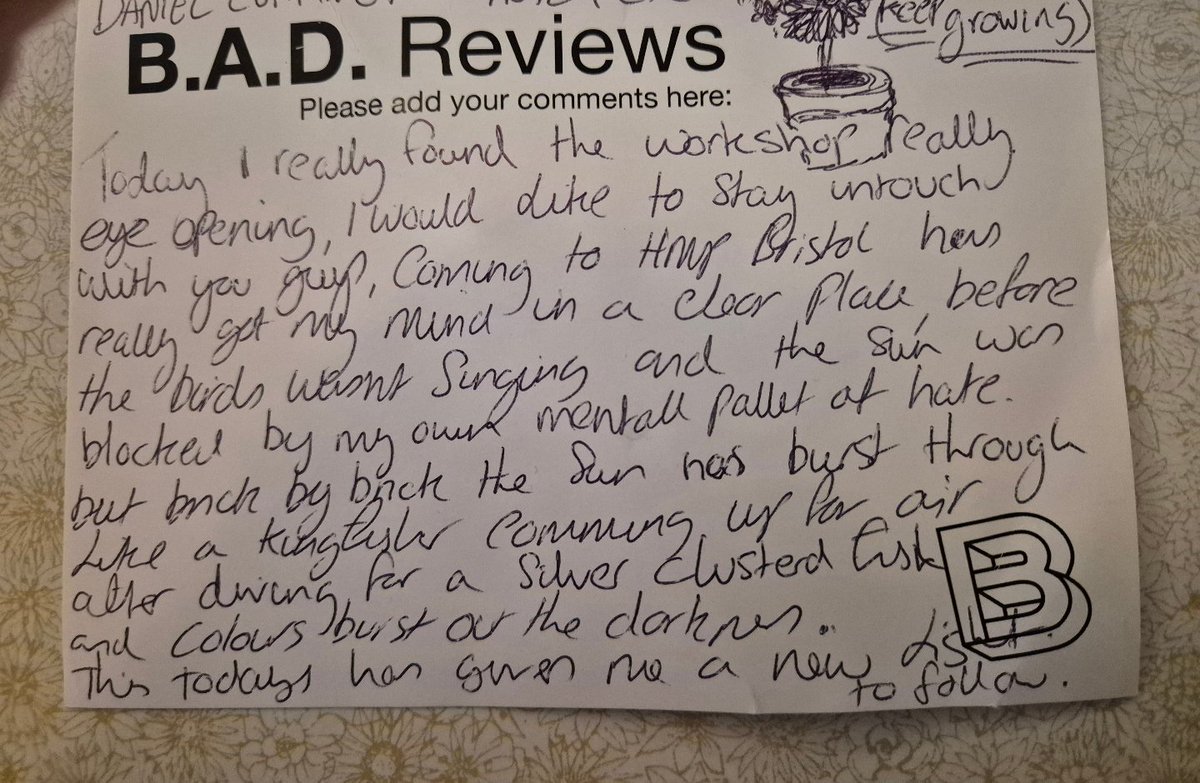 DANIEL
(keep
growing)
B.A.D. Reviews
Please add your comments here:
Today I really found the workshop really
eye opening, I would like to stay intouch
with you guys, Coming to HMP Bristol has
really got my mind in a clear place, before
the birds wasnt Singing and the sun was
blocked by my own mentall pallet of hate.
but brick by brick the Sun has burst through
Like a kingfisher comming up for air
after diving for a Silver Clusterd fish
and Colours burst out the darkness.
This todays has given me a new
to follow.
B